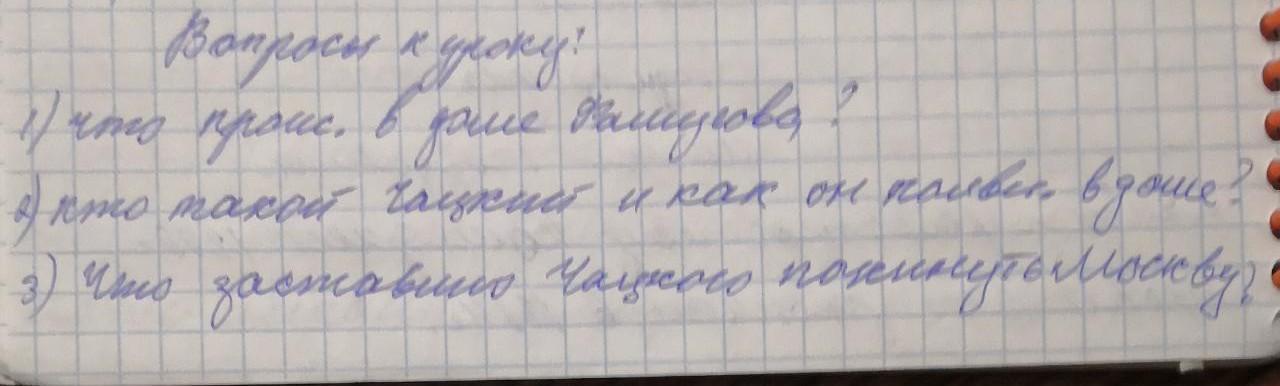 Вопросы к уроку:
1) что проис. в доме Фамусова?
2) кто такой Чацкий и как он появл. в доме?
3) Что заставило Чацкого покинуть Москву?